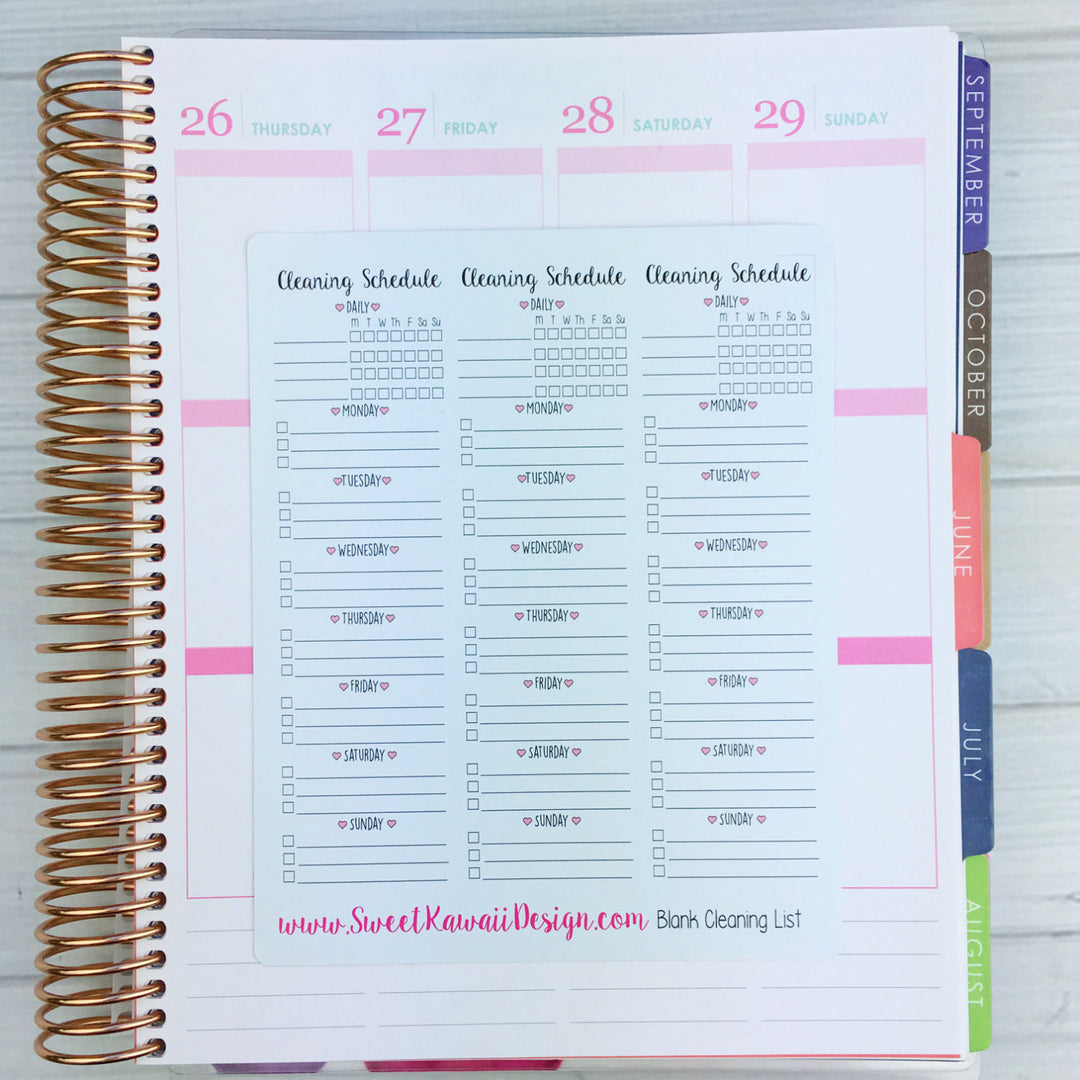 26 THURSDAY 27 FRIDAY 28 SATURDAY 29 SUNDAY
Cleaning Schedule
DAILY
M T W Th F Sa Su
MONDAY
TUESDAY
WEDNESDAY
THURSDAY
FRIDAY
SATURDAY
SUNDAY
Cleaning Schedule
DAILY
M T W Th F Sa Su
MONDAY
TUESDAY
WEDNESDAY
THURSDAY
FRIDAY
SATURDAY
SUNDAY
Cleaning Schedule
DAILY
M T W Th F Sa Su
MONDAY
TUESDAY
WEDNESDAY
THURSDAY
FRIDAY
SATURDAY
SUNDAY
www.SweetKawaiiDesign.com Blank Cleaning List
SEPTEMBER
OCTOBER
JUNE
JULY
AUGUST